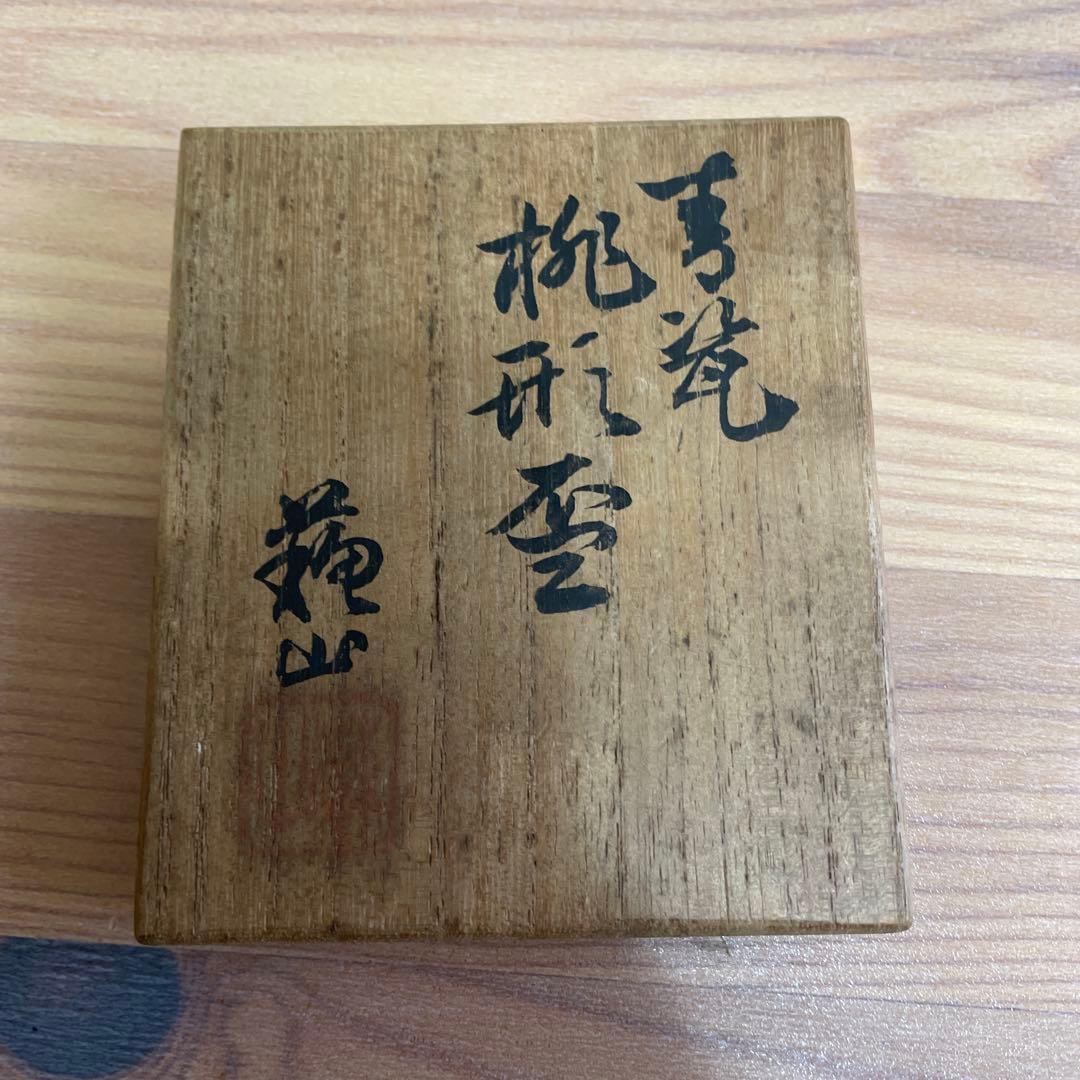 青瓷
桃形盃
蘓山